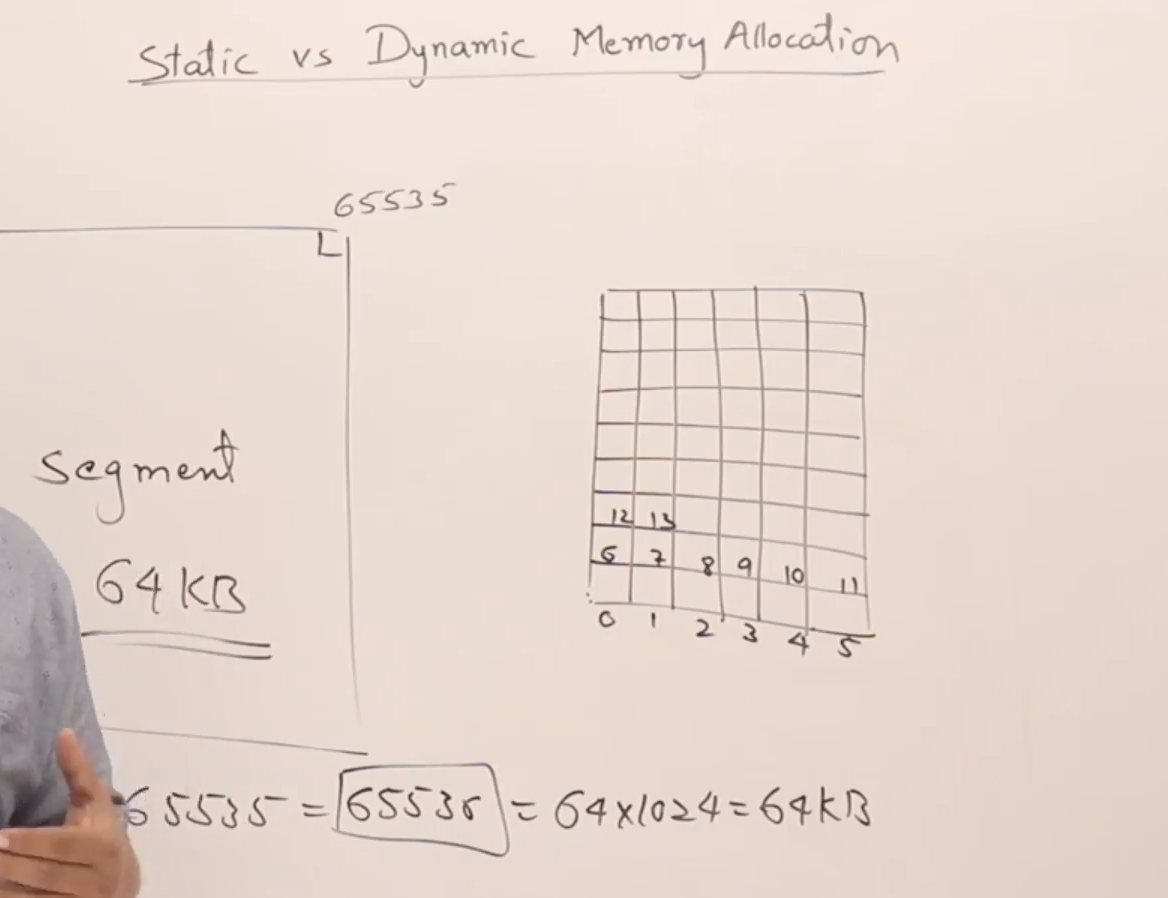 Static vs Dynamic Memory Allocation
65535
Segment
64 KB
12 13
6 7 8 9 10 11
0 1 2 3 4 5
65535 = 65536 = 64x1024 = 64KB